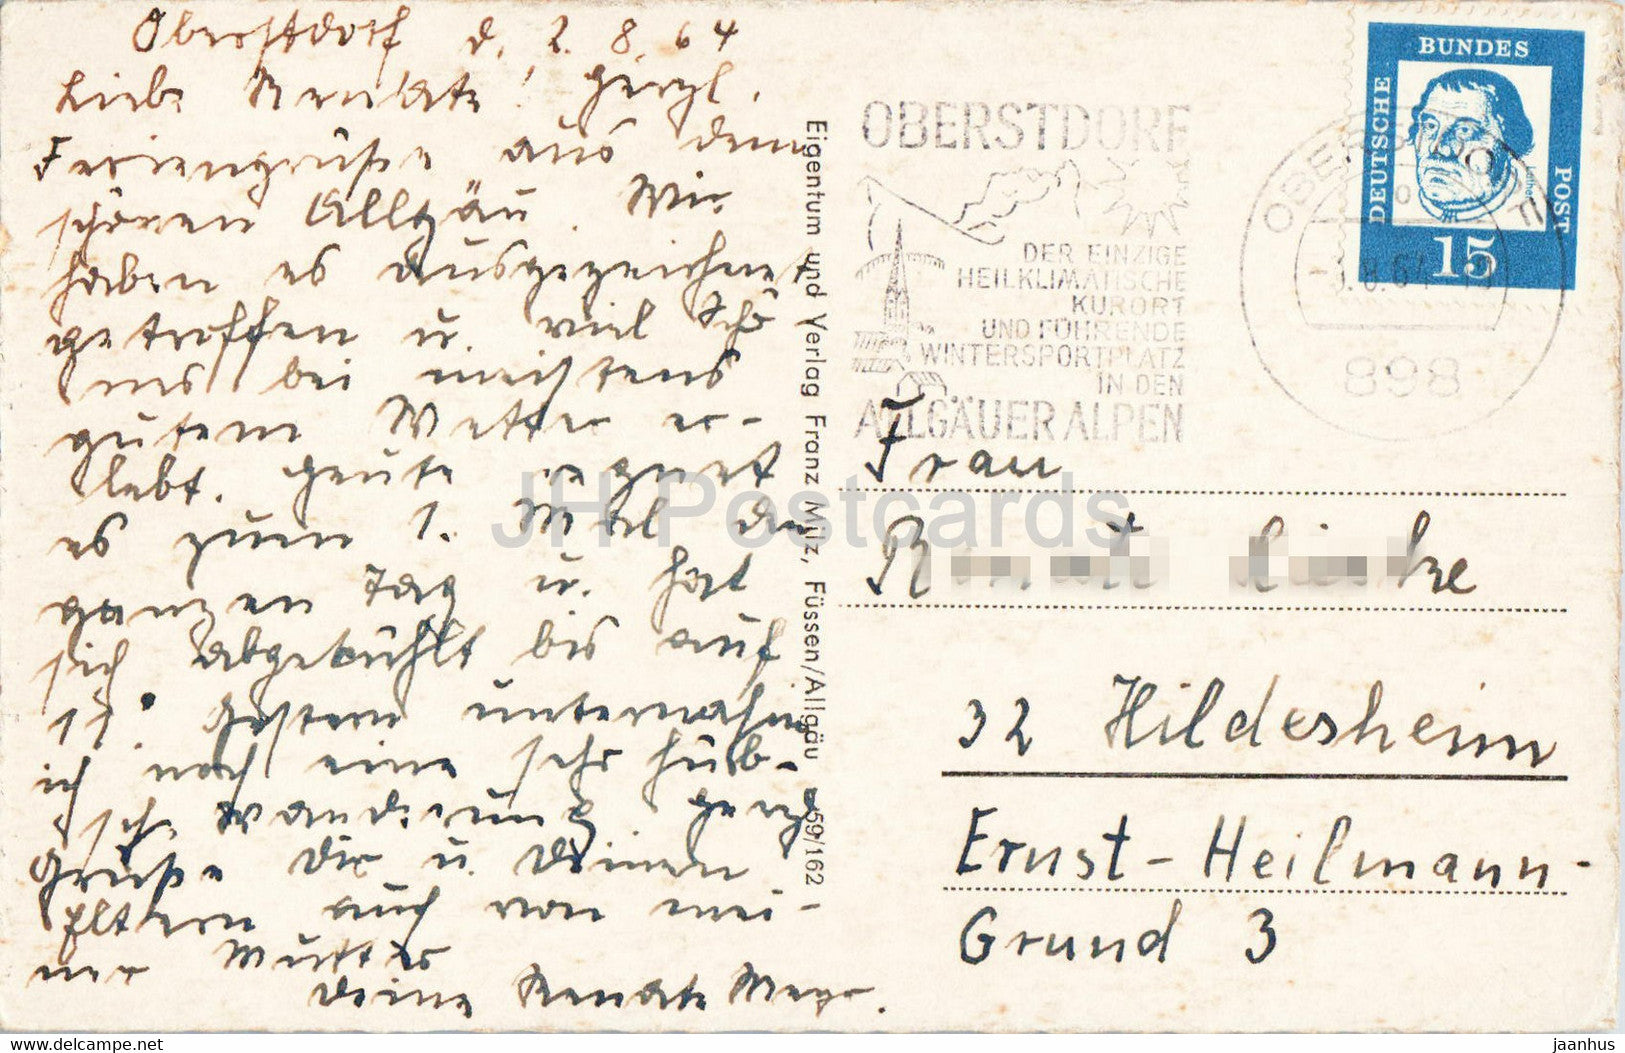 Oberstdorf d. 2. 8. 64
Liebe Renate! Herzl.
Feriengrüße aus dem
schönen Allgäu. Wir
haben es ausgezeichnet
getroffen u. viel Schö-
nes bei meistens
gutem Wetter er-
lebt. Heute regnet
es zum 1. Mal den
ganzen Tag u. hat
sich abgekühlt bis auf
11°. Gestern unternahm
ich noch eine sehr hüb-
sche Wanderung. Herzl.
Grüße Dir u. Deinen
Eltern auch von mei-
ner Mutter
Deine Renate Meyer.
Eigentum und Verlag Franz Milz, Füssen/Allgäu 59/162
OBERSTDORF
DER EINZIGE
HEILKLIMATISCHE
KURORT
UND FÜHRENDE
WINTERSPORTPLATZ
IN DEN
ALLGÄUER ALPEN
OBERSTDORF
898
DEUTSCHE
BUNDES
POST
15
Frau
32 Hildesheim
Ernst-Heilmann-
Grund 3
JH Postcards
www.delcampe.net
jaanhus